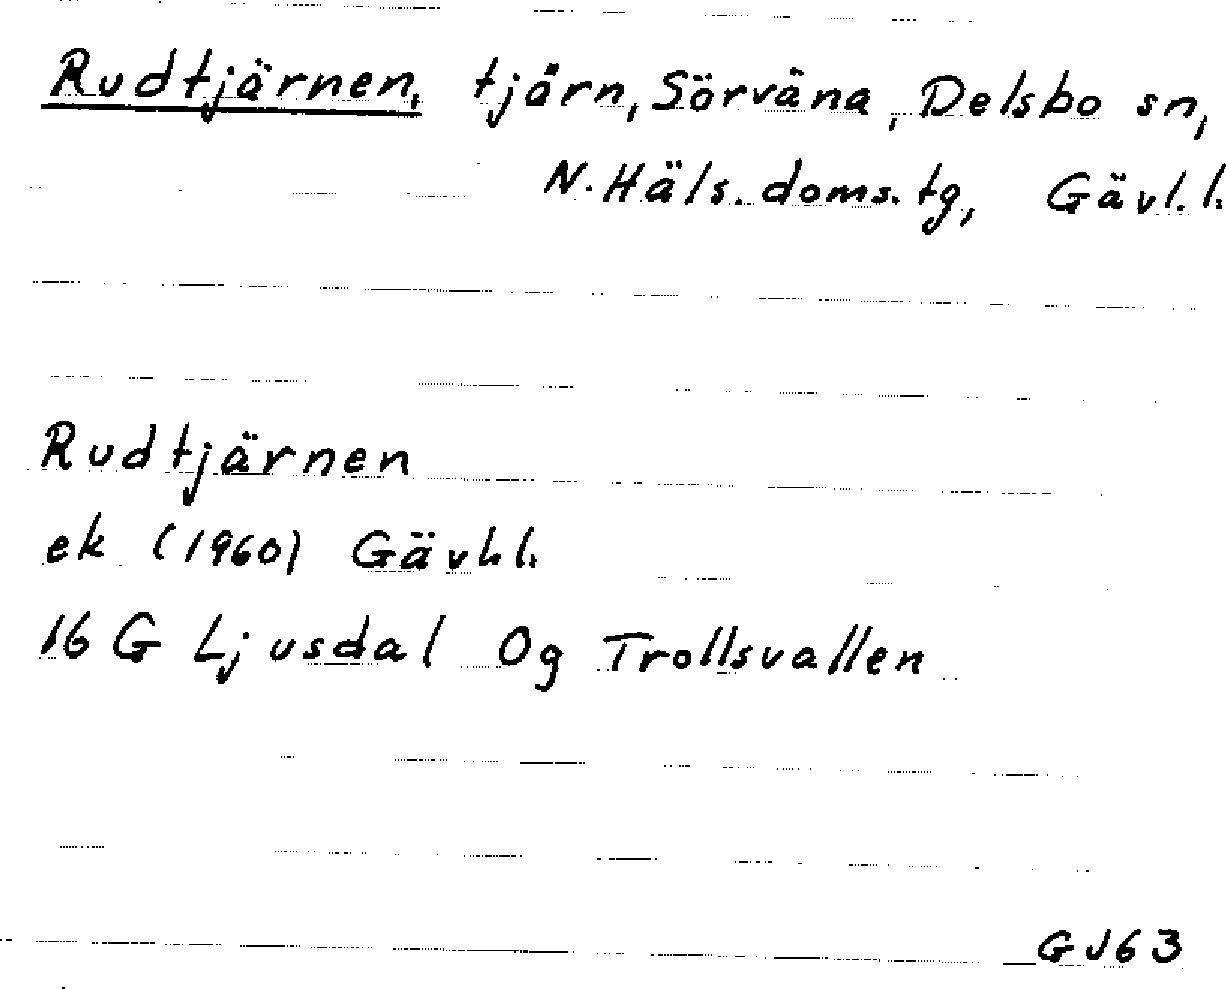 Rudtjärnen, tjärn, Sörväna, Delsbo sn,
N. Häls. doms. tg, Gävl. l.
Rudtjärnen
ek (1960) Gävl. l.
16 G Ljusdal 0g Trollsvallen
GJ63